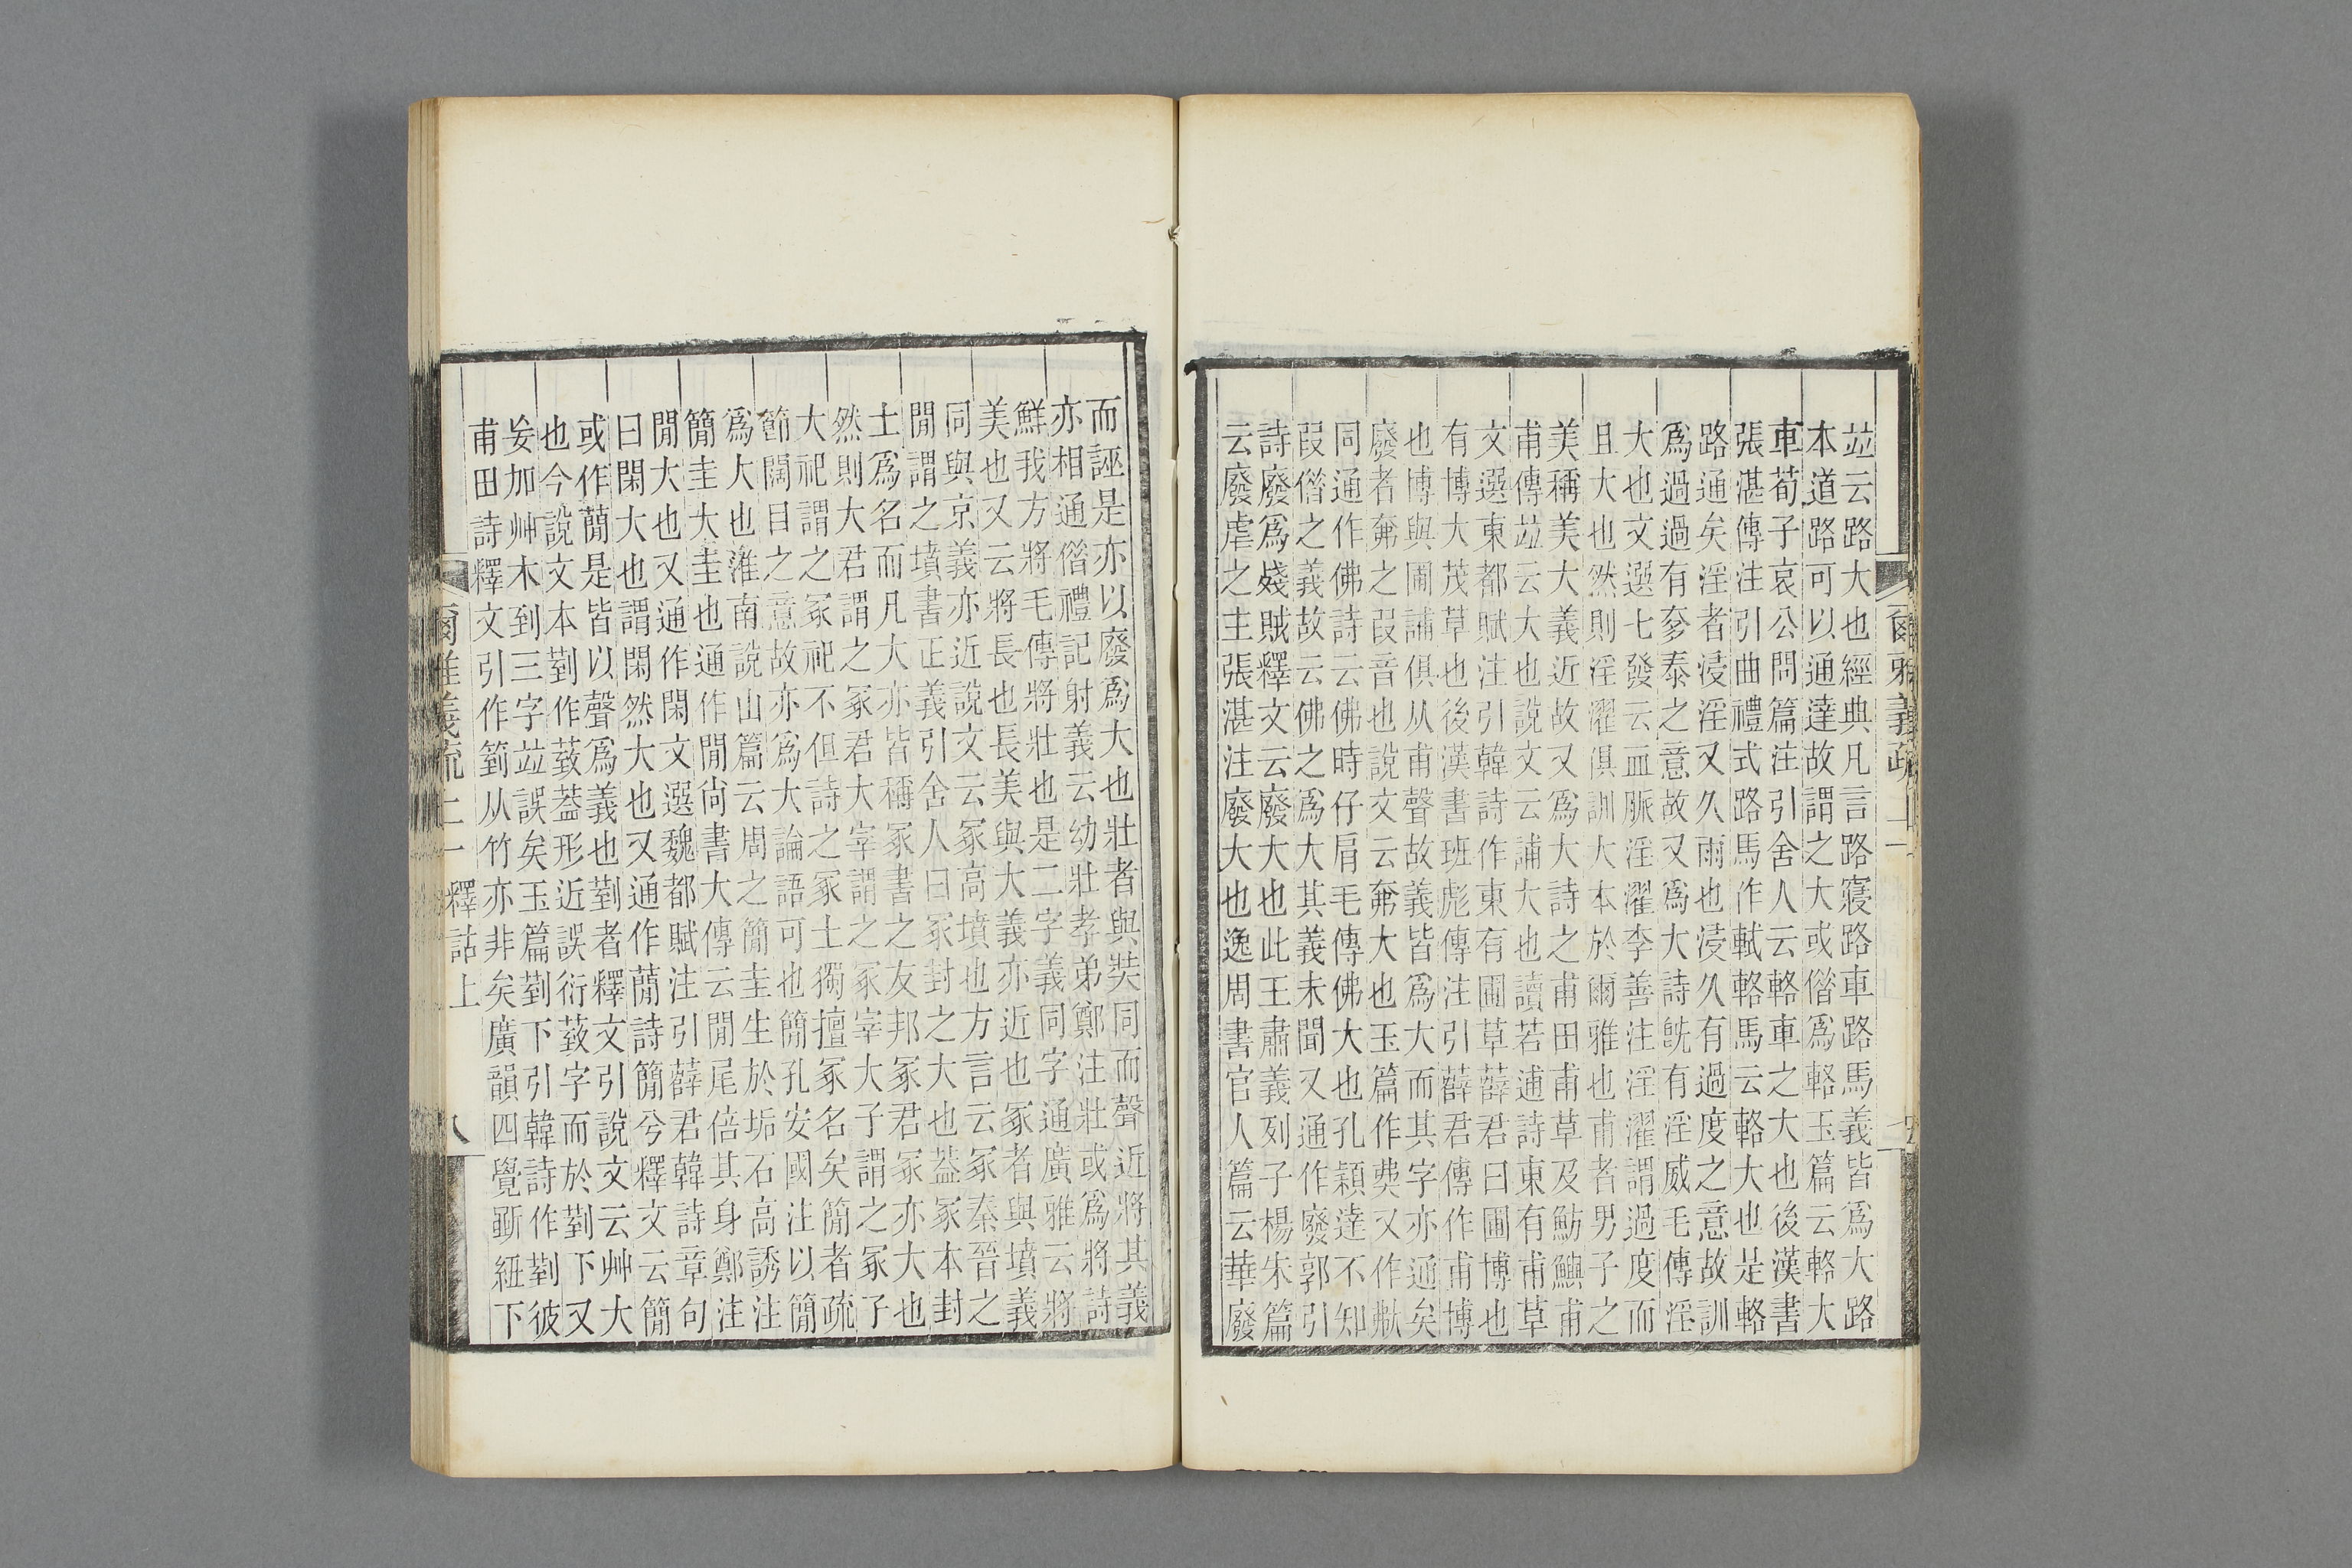 爾雅義疏 上一 七
竝云路大也經典凡言路寢路車路馬義皆爲大路
本道路可以通達故謂之大或偕爲輅玉篇云輅大
車荀子哀公問篇注引舍人云輅車之大也後漢書
張湛傳注引曲禮式路馬作軾輅馬云輅大也是輅
路通矣淫者浸淫又久雨也浸久有過度之意故訓
爲過過有奓泰之意故又爲大詩旣有淫威毛傳淫
大也文選七發云血脈淫濯李善注淫濯謂過度而
且大也然則淫濯俱訓大本於爾雅也甫者男子之
美稱美大義近故又爲大詩之甫田甫草及魴鱮甫
甫傳竝云大也說文云誧大也讀若逋詩東有甫草
文選東都賦注引韓詩作東有圃草薛君曰圃博也
有博大茂草也後漢書班彪傳注引薛君傳作甫博
也博與圃誧俱从甫聲故義皆爲大而其字亦通矣
廢者㚕之叚音也說文云㚕大也玉篇作又作
同通作佛詩云佛時仔肩毛傳佛大也孔穎達不知
叚偕之義故云佛之爲大其義未聞又通作廢郭引
詩廢爲殘賊釋文云廢大也此王肅義列子楊朱篇
云廢虐之主張湛注廢大也逸周書官人篇云華廢
而誣是亦以廢爲大也壯者與奘同而聲近將其義
亦相通偕禮記射義云幼壯孝弟鄭注壯或爲將詩
鮮我方將毛傳將壯也是二字義同字通廣雅云將
美也又云將長也長美與大義亦近也冢者與墳義
同與京義亦近說文云冢高墳也方言云冢秦晉之
閒謂之墳書正義引舍人曰冢封之大也葢冢本封
土爲名而凡大亦皆稱冢書之友邦冢君冢亦大也
然則大君謂之冢君大宰謂之冢宰大子謂之冢子
大祀謂之冢祀不但詩之冢土獨擅冢名矣簡者疏
節闊目之意故亦爲大論語可也簡孔安國注以簡
爲大也淮南說山篇云周之簡圭生於垢石高誘注
簡圭大圭也通作閒尙書大傳云閒尾倍其身鄭注
閒大也又通作閑文選魏都賦注引薛君韓詩章句
曰閑大也謂閑然大也又通作蕑詩簡兮釋文云簡
或作蕑是皆以聲爲義也菿者釋文引說文云艸大
也今說文本菿作葢形近誤衍字而於菿下又
妄加艸木到三字竝誤矣玉篇菿下引韓詩作菿彼
甫田詩釋文引作箌从竹亦非矣廣韻四覺斲紐下
爾雅義疏 上一 釋詁上 八